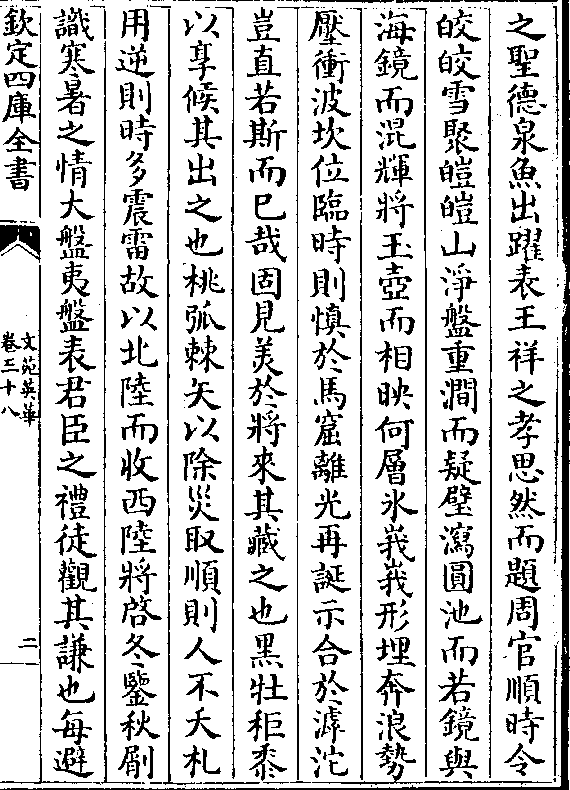 之聖德泉魚出躍表王祥之孝思然而題周官順時令
皎皎雪聚皚皚山淨盤重澗而疑璧瀉圓池而若鏡與
海鏡而混輝將玉壺而相映何層氷峩峩形埋奔浪勢
壓衝波坎位臨時則慎於馬窟離光再誕示合於滹沱
豈直若斯而已哉固見羙於將來其藏之也黒牡秬黍
以享候其出之也桃弧棘矢以除災取順則人不夭札
用逆則時多震雷故以北陸而收西陸將啓冬鑒秋刷
識寒暑之情大盤夷盤表君臣之禮徒觀其謙也每避
欽定四庫全書
文苑英華
卷三十八
二